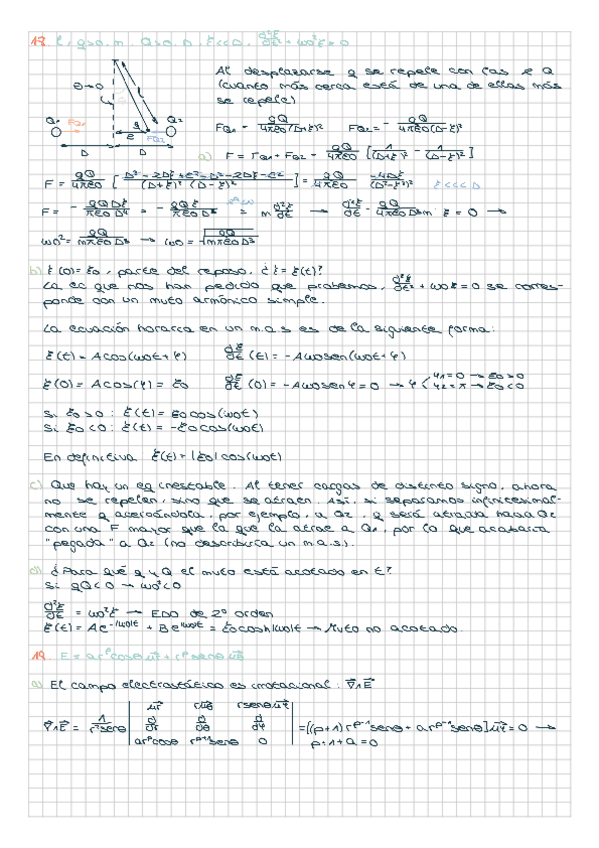 18. ℓ, q>0, m, Q>0, D, ξ<<D, d²ξ/dt² + ω0²ξ = 0
Al desplazarse q se repele con las 2 Q
(cuanto más cerca está de una de ellas más
se repele)
θ→0
Q1 FQ2 FQ1 Q2
q
ξ
D D
FQ1 = qQ/4πε0(D+ξ)² FQ2 = - qQ/4πε0(D-ξ)²
a) F = FQ1 + FQ2 = qQ/4πε0 [1/(D+ξ)² - 1/(D-ξ)²]
F = qQ/4πε0 [D² - 2Dξ + ξ² - D² - 2Dξ - ξ²/(D+ξ)² (D-ξ)²] = qQ/4πε0 -4Dξ/(D²-ξ²)² ξ<<<D
F = - qQDξ/πε0D⁴ = - qQξ/πε0D³ = m d²ξ/dt² → d²ξ/dt² · ξ = 0 →
ω0² = qQ/mπε0D³ → ω0 = √qQ/mπε0D³
b) ξ(0) = ξ0, parte del reposo, ¿ξ = ξ(t)?
La ec que nos han pedido que probemos, d²ξ/dt² + ω0ξ = 0 se corres-
ponde con un mvto armónico simple.
La ecuación horaria en un m.a.s es de la siguiente forma:
ξ(t) = Acos(ω0t+φ) dξ/dt (t) = -Aω0sen(ω0t+φ)
ξ(0) = Acos(φ) = ξ0 dξ/dt (0) = -Aω0senφ = 0 → φ φ1=0 → ξ0>0 φ2=π → ξ0<0
Si ξ0>0: ξ(t) = ξ0cos(ω0t)
Si ξ0<0: ξ(t) = -ξ0cos(ω0t)
En definitiva ξ(t) = |ξ0|cos(ω0t)
c) Que hay un eq inestable. Al tener cargas de distinto signo, ahora
no se repelen, sino que se atraen. Así, si separamos infinitesimal-
mente q acercándola, por ejemplo, a Q2, q será atraída hacia Q2
con una F mayor que la que la atrae a Q1, por lo que acabaría
"pegada" a Q2 (no describiría un m.a.s).
d) ¿Para qué q y Q el mvto está acotado en t?
Si qQ<0 → ω0²<0
d²ξ/dt² = ω0²ξ → EDO de 2º orden
ξ(t) = Ae^-|ω0|t + Be^|ω0|t = ξ0cosh|ω0|t → Mvto no acotado.
19. E = ar^p cosθ ur + r^p senθ uθ
a) El campo electrostático es irrotacional: ∇∧E
∇∧E = 1/r²senθ | ur ruθ rsenθuφ
d/dr d/dθ d/dφ
ar^p cosθ r^p+1 senθ 0 | = [(p+1)r^p-1 senθ + ar^p-1 senθ]uφ = 0 →
p+1+a = 0